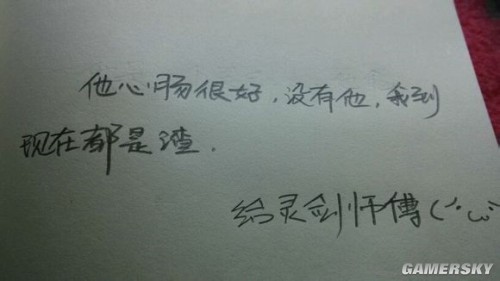 他心肠很好，没有他，我到
现在都是渣．
给灵剑师傅(´･ω･
GAMERSKY